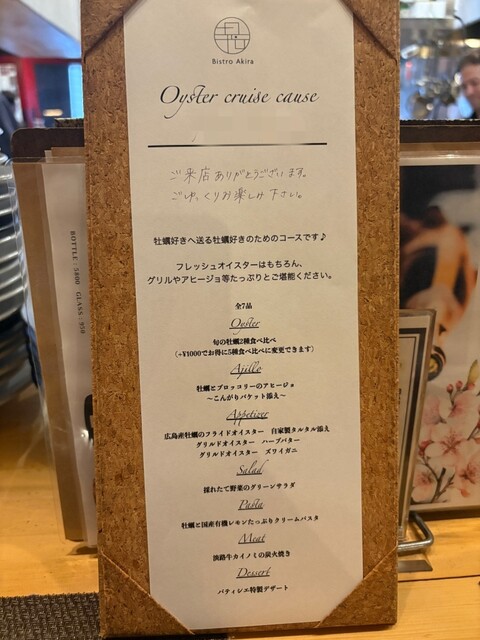 Bistro Akira
Oyster cruise cause
ご来店ありがとうございます。
ごゆっくりお楽しみ下さい。
牡蠣好きへ送る牡蠣好きのためのコースです♪
フレッシュオイスターはもちろん、
グリルやアヒージョ等たっぷりとご堪能ください。
全7品
Oyster
旬の牡蠣2種食べ比べ
(+¥1000でお得に5種食べ比べに変更できます)
Ajillo
牡蠣とブロッコリーのアヒージョ
～こんがりバケット添え～
Appetizer
広島産牡蠣のフライドオイスター 自家製タルタル添え
グリルドオイスター ハーブバター
グリルドオイスター ズワイガニ
Salad
採れたて野菜のグリーンサラダ
Pasta
牡蠣と国産有機レモンたっぷりクリームパスタ
Meat
淡路牛カイノミの炭火焼き
Dessert
パティシエ特製デザート
BOTTLE : 5800 GLASS : 950